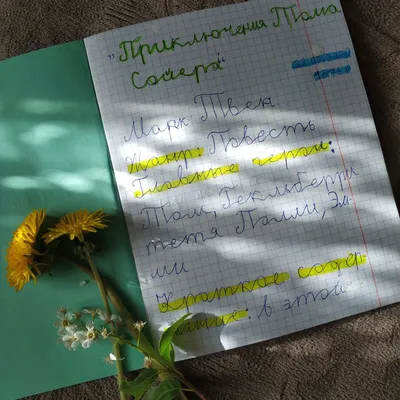 "Приключения Тома
Сойера"
Марк Твен
Жанр: Повесть
Главные герои:
Том, Гекльберри
тётя Полли, Эм-
ми
Краткое содер
жание: в этой